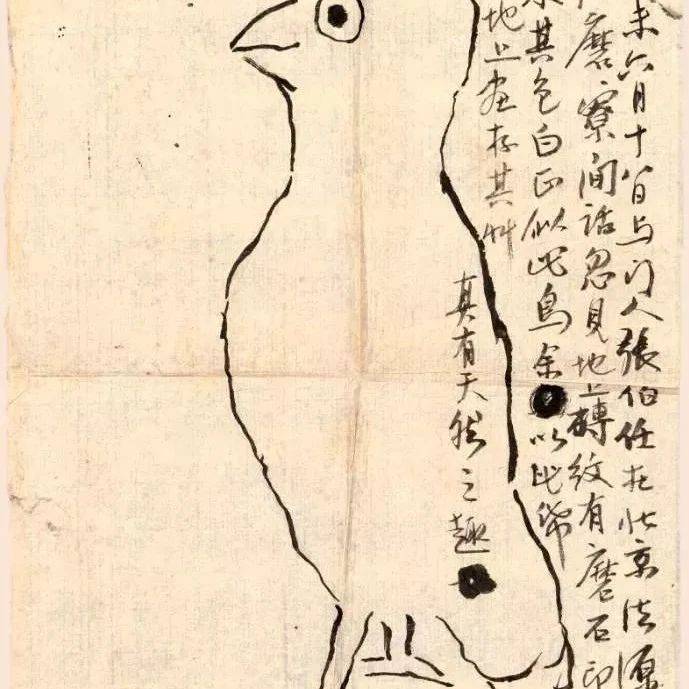 未六月十八日与門人張伯任在北京法源
磨寮間話忽見地上磚紋有磨石印
其色白正似此鳥余以此帋
地上畫存其艸
真有天然之趣